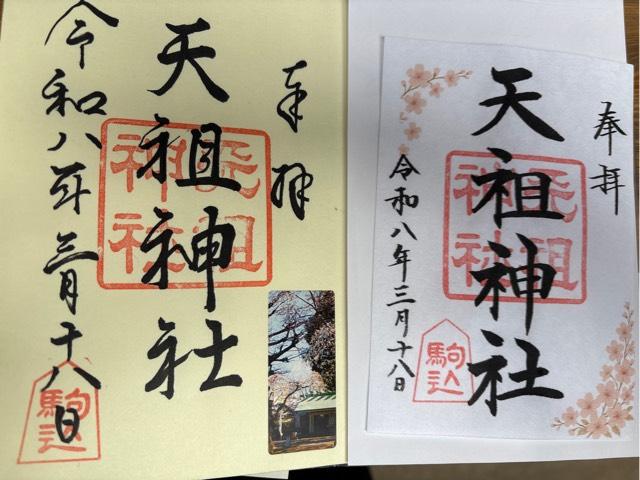 奉拝
天祖神社
天祖神社
令和八年三月十八日
駒込
奉拝
天祖神社
天祖神社
令和八年三月十八日
駒込